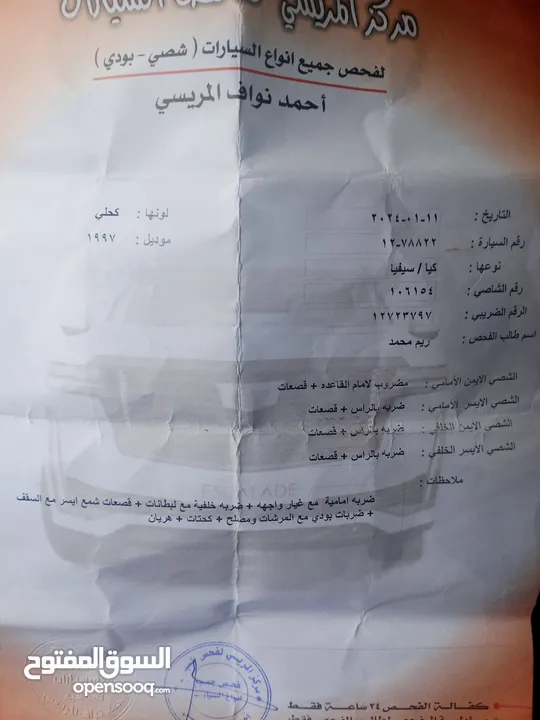 مركز المريسي لفحص السيارات
لفحص جميع انواع السيارات ( شصي - بودي )
أحمد نواف المريسي
التاريخ : ٢٠٢٤-٠١-١١ لونها : كحلي
رقم السيارة : ١٢-٧٨٨٢٢ موديل : ١٩٩٧
نوعها : كيا / سيفيا
رقم الشاصي : ١٠٦١٥٤
الرقم الضريبي : ١٢٧٢٣٧٩٧
اسم طالب الفحص : ريم محمد
الشصي الايمن الأمامي : مضروب لامام القاعده + قصعات
الشصي الايسر الامامي : ضربه بالراس + قصعات
الشصي الايمن الخلفي : ضربه بالراس + قصعات
الشصي الايسر الخلفي : ضربه بالراس + قصعات
ملاحظات :
ضربه امامية مع غيار واجهه + ضربه خلفية مع لبطانات + قصعات شمع ايسر مع السقف
+ ضربات بودي مع المرشات ومصلح + كحتات + هريان
ESCALADE
مركز المريسي لفحص
فحص جميع
انواع السيارات
كفالة الفحص ٢٤ ساعة فقط
السوق المفتوح
opensooq.com